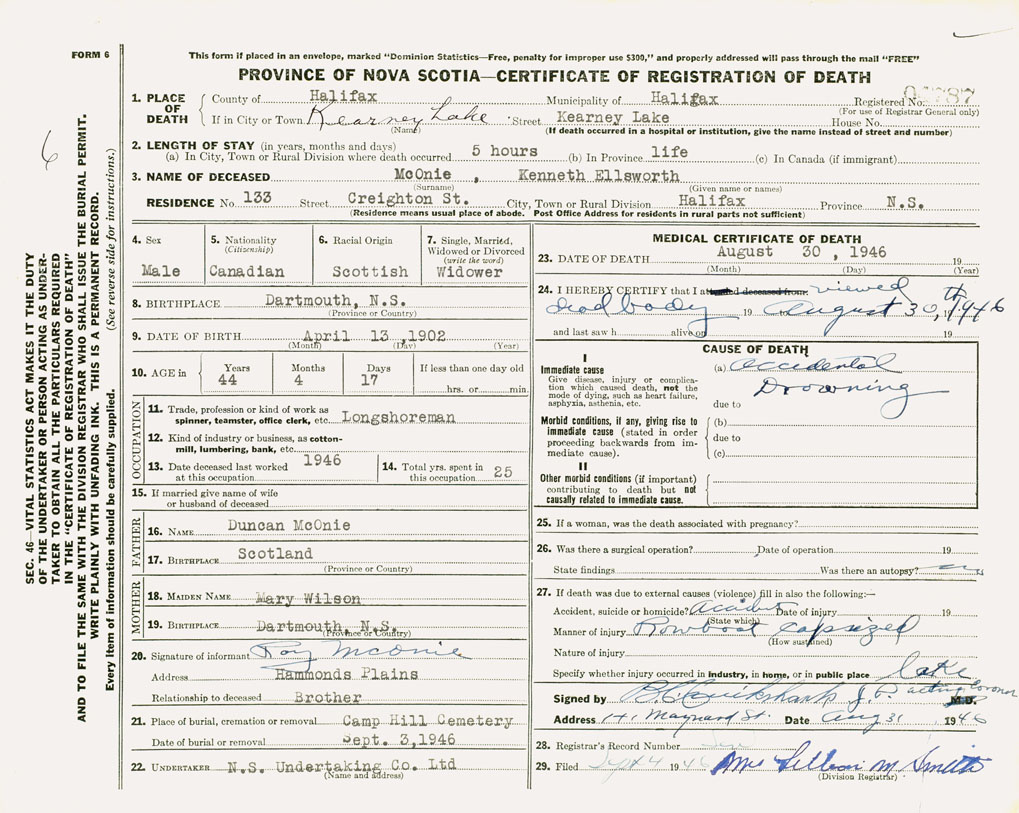 FORM 6
This form if placed in an envelope, marked "Dominion Statistics—Free, penalty for improper use $300," and properly addressed will pass through the mail "FREE"
PROVINCE OF NOVA SCOTIA—CERTIFICATE OF REGISTRATION OF DEATH
6
SEC. 46—VITAL STATISTICS ACT MAKES IT THE DUTY
OF THE UNDERTAKER OR PERSON ACTING AS UNDER-
TAKER TO OBTAIN ALL THE PARTICULARS REQUIRED
IN THE "CERTIFICATE OF REGISTRATION OF DEATH"
AND TO FILE THE SAME WITH THE DIVISION REGISTRAR WHO SHALL ISSUE THE BURIAL PERMIT.
WRITE PLAINLY WITH UNFADING INK. THIS IS A PERMANENT RECORD.
Every item of information should be carefully supplied. (See reverse side for instructions.)
1. PLACE OF DEATH County of Halifax Municipality of Halifax Registered No. 787
(For use of Registrar General only)
If in City or Town Kearney Lake Street Kearney Lake House No.
(Name) (If death occurred in a hospital or institution, give the name instead of street and number)
2. LENGTH OF STAY (in years, months and days)
(a) In City, Town or Rural Division where death occurred 5 hours (b) In Province life (c) In Canada (if immigrant)
3. NAME OF DECEASED McOnie , Kenneth Ellsworth
(Surname) (Given name or names)
RESIDENCE No. 133 Street Creighton St. City, Town or Rural Division Halifax Province N.S.
(Residence means usual place of abode. Post Office Address for residents in rural parts not sufficient)
4. Sex Male
5. Nationality (Citizenship) Canadian
6. Racial Origin Scottish
7. Single, Married, Widowed or Divorced (write the word) Widower
8. BIRTHPLACE Dartmouth, N.S.
(Province or Country)
9. DATE OF BIRTH April 13, 1902
(Month) (Day) (Year)
10. AGE in Years 44 Months 4 Days 17 If less than one day old hrs. or min.
OCCUPATION
11. Trade, profession or kind of work as
spinner, teamster, office clerk, etc. Longshoreman
12. Kind of industry or business, as cotton-
mill, lumbering, bank, etc.
13. Date deceased last worked at this occupation 1946
14. Total yrs. spent in this occupation 25
15. If married give name of wife
or husband of deceased
FATHER
16. NAME Duncan McOnie
17. BIRTHPLACE Scotland
(Province or Country)
MOTHER
18. MAIDEN NAME Mary Wilson
19. BIRTHPLACE Dartmouth, N.S.
(Province or Country)
20. Signature of informant Roy McOnie
Address Hammonds Plains
Relationship to deceased Brother
21. Place of burial, cremation or removal Camp Hill Cemetery
Date of burial or removal Sept. 3, 1946
22. UNDERTAKER N.S. Undertaking Co. Ltd
(Name and address)
MEDICAL CERTIFICATE OF DEATH
23. DATE OF DEATH August 30, 1946 19
(Month) (Day) (Year)
24. I HEREBY CERTIFY that I attended deceased from: viewed
dead body 19 August 30th, 1946 19
and last saw h alive on 19
CAUSE OF DEATH
I
Immediate cause (a) accidental
Give disease, injury or complica- Drowning
tion which caused death, not the
mode of dying, such as heart failure,
asphyxia, asthenia, etc. due to
Morbid conditions, if any, giving rise to (b)
immediate cause (stated in order due to
proceeding backwards from im-
mediate cause). (c)
II
Other morbid conditions (if important)
contributing to death but not
causally related to immediate cause.
25. If a woman, was the death associated with pregnancy?
26. Was there a surgical operation? Date of operation 19
State findings Was there an autopsy? no
27. If death was due to external causes (violence) fill in also the following:—
Accident, suicide or homicide? accident Date of injury 19
(State which)
Manner of injury Rowboat capsized
(How sustained)
Nature of injury
Specify whether injury occurred in industry, in home, or in public place lake
Signed by J.P. acting Coroner M.D.
Address Maynard St. Date Aug 31 1946
28. Registrar's Record Number
29. Filed Sept 4 1946 Mrs Lillian M Smith
(Division Registrar)